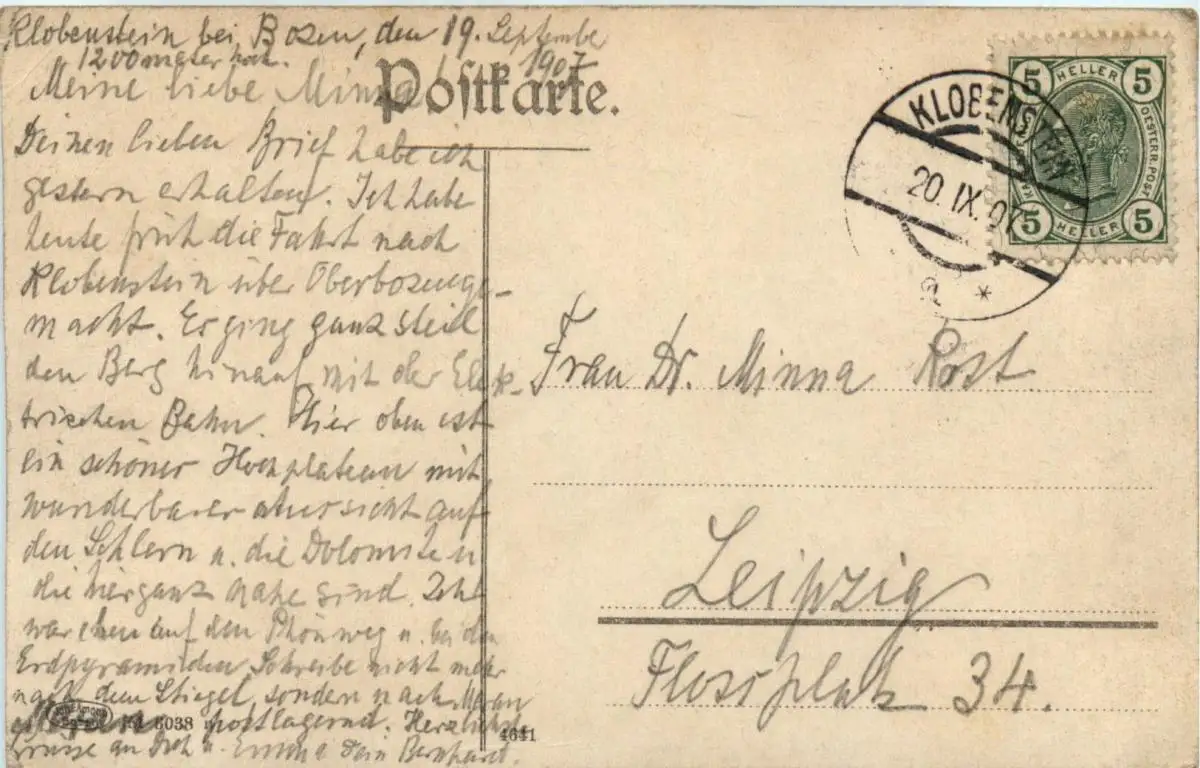 Klobenstein bei Bozen, den 19. Septembe
1907
1200 meter hoch.
Meine liebe Minna!
Postkarte.
Deinen lieben Brief habe ich
gestern erhalten. Ich habe
heute früh die Fahrt nach
Klobenstein über Oberbozen ge-
macht. Es ging ganz steil
den Berg hinauf mit der Elek-
trischen Bahn. Hier oben ist
ein schöner Hochplateau mit
wunderbarer Aussicht auf
den Schlern u. die Dolomiten
die hier ganz nahe sind. Ich
war eben auf den Phönweg u. bei den
Erdpyramiden. Schreibe nicht mehr
nach dem Stiegel, sondern nach Meran
postlagernd. Herzlichste
Grüsse an Dich u. Emma Dein Bernhard.
6038
4641
KLOBENSTEIN
20.IX.07
a *
5 HELLER 5
OESTERR. POST
5 HELLER 5
Frau Dr. Minna Rost
Leipzig
Flossplatz 34.